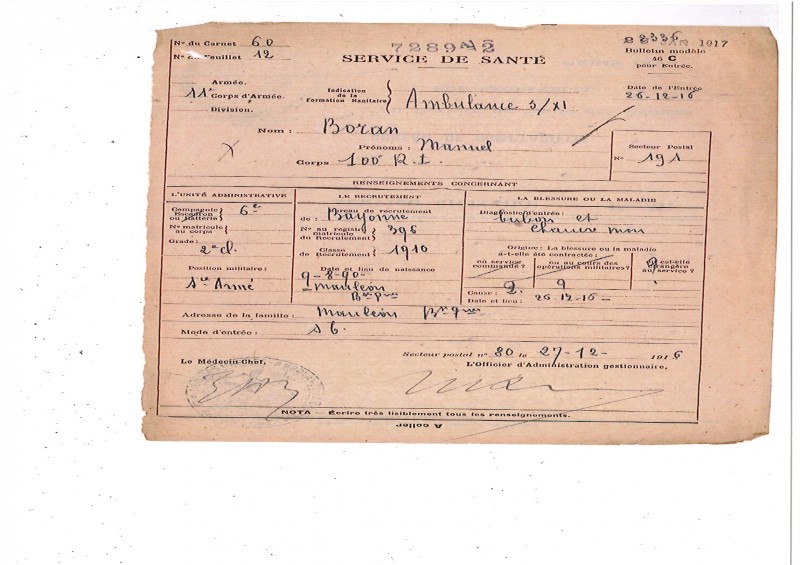 No du Carnet 60
No du Feuillet 12
SERVICE DE SANTÉ
2336
JAN 1917
Bulletin modèle
46 C
pour Entrée.
Armée.
11e Corps d'Armée.
Division.
Indication
de la
Formation Sanitaire
Ambulance 3/XI
Date de l'Entrée
26-12-16
Nom : Boran
Prénoms : Manuel
Corps 100 R.I.
Secteur Postal
No 191
RENSEIGNEMENTS CONCERNANT
L'UNITÉ ADMINISTRATIVE
Compagnie
Escadron
ou Batterie
6e
No matricule
au corps
Grade :
2e cl.
Position militaire :
Armé
LE RECRUTEMENT
Bureau de recrutement
de : Bayonne
No au registre
matricule du
Recrutement
396
Classe
de
Recrutement
1910
Date et lieu de naissance
9-8-90-
Mauléon
LA BLESSURE OU LA MALADIE
Diagnostic d'entrée :
et
Origine : La blessure ou la maladie
a-t-elle été contractée :
en service
commandé ?
ou au cours des
opérations militaires ?
est-elle
étrangère
au service ?
Cause :
Date et lieu : 26-12-16-
Adresse de la famille : Mauléon
Mode d'entrée :
Secteur postal no 80 le 27-12- 1916
Le Médecin-Chef,
L'Officier d'Administration gestionnaire,
NOTA — Écrire très lisiblement tous les renseignements.
A coller